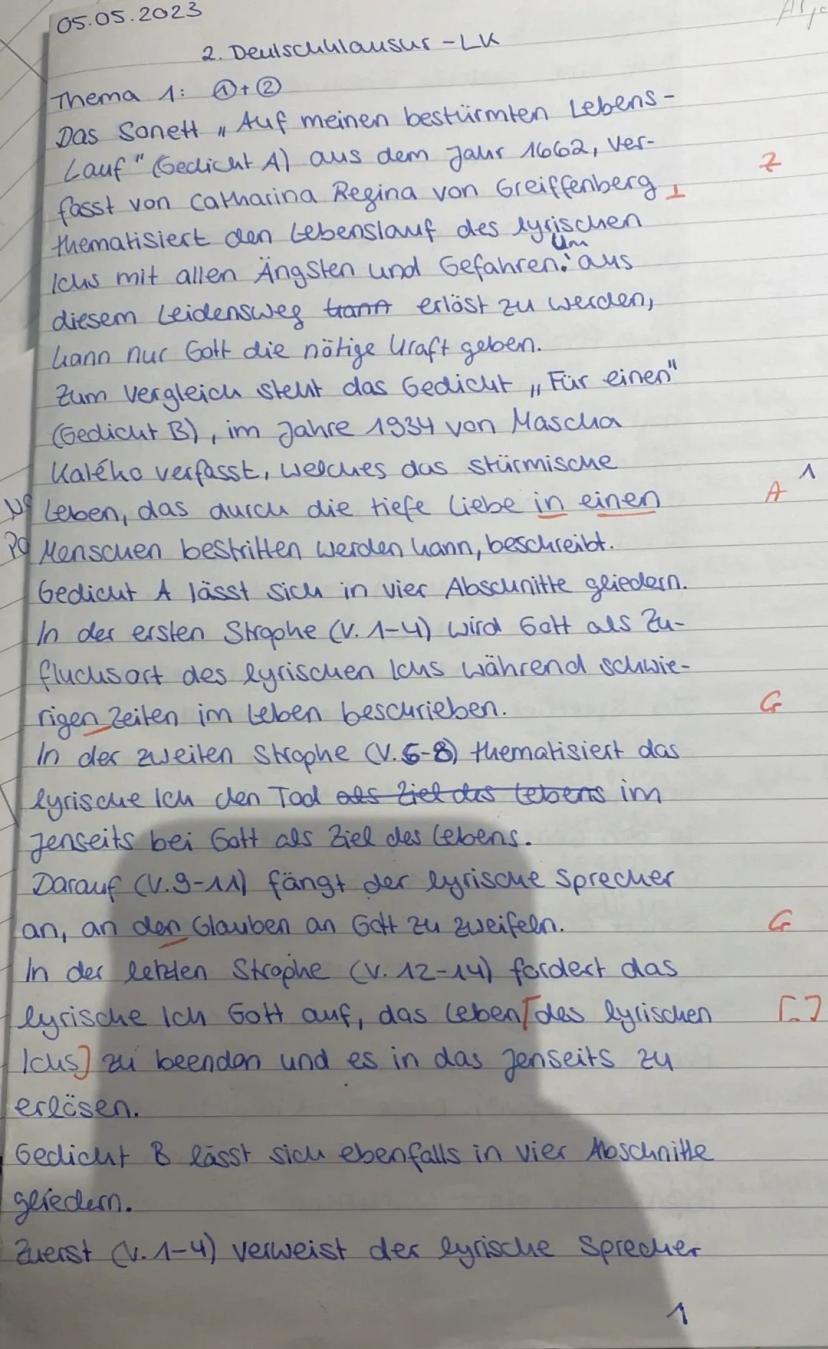 05.05.2023
2. Deutschklausur - LK
Thema 1: ①+②
Das Sonett „Auf meinen bestürmten Lebens-
Lauf" (Gedicht A) aus dem Jahr 1662, ver-
Z
fasst von Catharina Regina von Greiffenberg
thematisiert den Lebenslauf des lyrischen
Ichs mit allen Ängsten und Gefahren. Um aus
diesem Leidensweg erlöst zu werden,
kann nur Gott die nötige Kraft geben.
Zum Vergleich steht das Gedicht „Für einen"
(Gedicht B), im Jahre 1934 von Mascha
Kaléko verfasst, welches das stürmische
Leben, das durch die tiefe Liebe in einen
A 1
Menschen bestritten werden kann, beschreibt.
Gedicht A lässt sich in vier Abschnitte gliedern.
In der ersten Strophe (V. 1-4) wird Gott als Zu-
fluchsort des lyrischen Ichs während schwie-
rigen Zeiten im Leben beschrieben.
G
In der zweiten Strophe (V. 5-8) thematisiert das
lyrische Ich den Tod als Ziel des Lebens im
Jenseits bei Gott als Ziel des Lebens.
Darauf (V. 9-11) fängt der lyrische Sprecher
an, an den Glauben an Gott zu zweifeln.
G
In der letzten Strophe (V. 12-14) fordert das
lyrische Ich Gott auf, das Leben [des lyrischen
[ ]
Ichs] zu beenden und es in das Jenseits zu
erlösen.
Gedicht B lässt sich ebenfalls in vier Abschnitte
gliedern.
Zuerst (V. 1-4) verweist der lyrische Sprecher
1